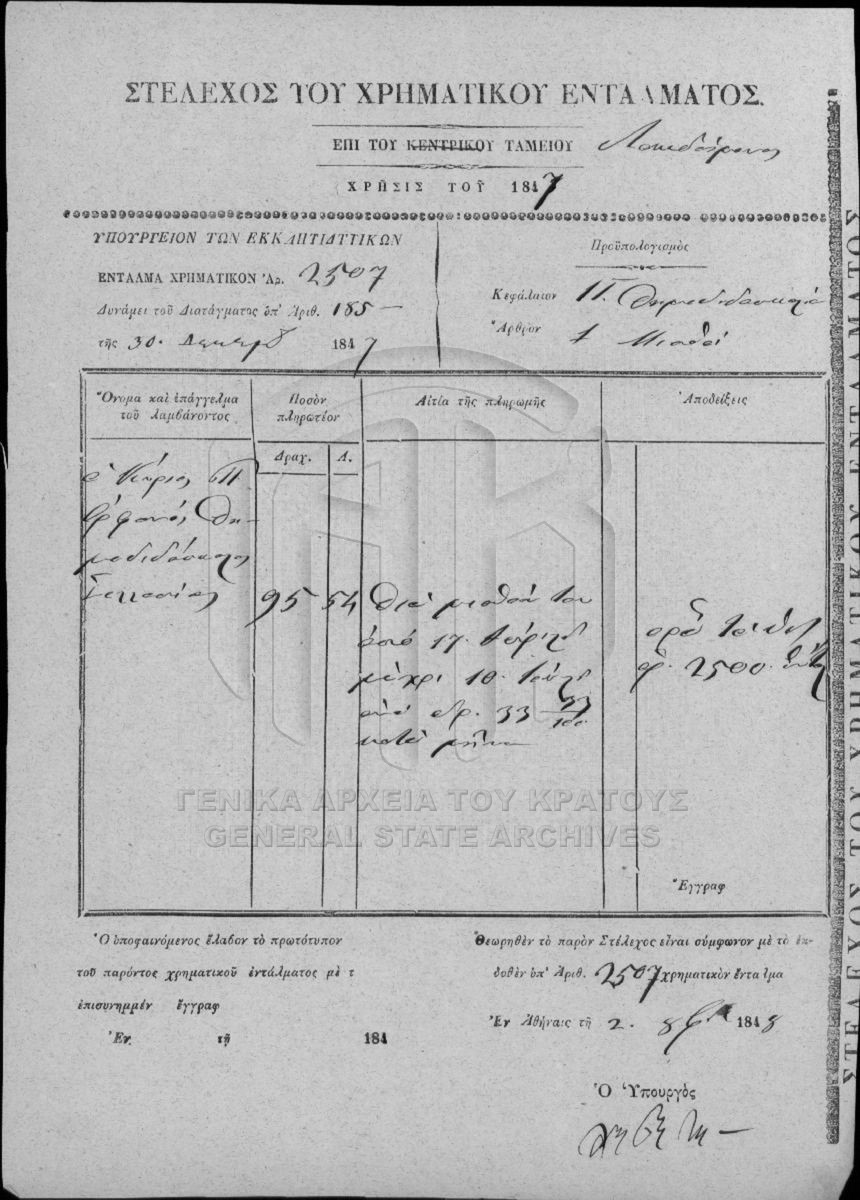 ΣΤΕΛΕΧΟΣ ΤΟΥ ΧΡΗΜΑΤΙΚΟΥ ΕΝΤΑΛΜΑΤΟΣ.
ΕΠΙ ΤΟΥ ΚΕΝΤΡΙΚΟΥ ΤΑΜΕΙΟΥ Λακεδαίμονος
ΧΡΗΣΙΣ ΤΟΥ 1847
ΥΠΟΥΡΓΕΙΟΝ ΤΩΝ ΕΚΚΛΗΣΙΑΣΤΙΚΩΝ
ΕΝΤΑΛΜΑ ΧΡΗΜΑΤΙΚΟΝ Ἀρ. 2507
Δυνάμει τοῦ Διατάγματος ὑπ' Ἀριθ. 185
τῆς 30 1847
Προϋπολογισμὸς
Κεφάλαιον Π. Δημοδιδασκαλεῖα
Ἄρθρον 1 Μισθοὶ
Ὄνομα καὶ ἐπάγγελμα
τοῦ λαμβάνοντος
Ποσὸν
πληρωτέον
Αἰτία τῆς πληρωμῆς
Ἀποδείξεις
Δραχ. Λ.
ὁ Κύριος Π.
Ὀρφανός Δη-
μοδιδάσκαλος
Σελλασίας
95 54
Διὰ μισθόν του
ἀπὸ 17 Ἀπριλ
μέχρι 10 Ἰουλ
ἀνὰ δρ. 33 33/100
κατὰ μῆνα
2500
Ἔγγραφ
Ὁ ὑποφαινόμενος ἔλαβον τὸ πρωτότυπον
τοῦ παρόντος χρηματικοῦ ἐντάλματος μὲ τ
ἐπισυνημμέν ἔγγραφ
Ἐν τῇ 184
Θεωρηθὲν τὸ παρὸν Στέλεχος εἶναι σύμφωνον μὲ τὸ ἐκ-
δοθὲν ὑπ' Ἀριθ. 2507 χρηματικὸν ἔνταλμα
Ἐν Ἀθήναις τῇ 2. 1848
Ὁ Ὑπουργὸς
ΣΤΕΛΕΧΟΣ ΤΟΥ ΧΡΗΜΑΤΙΚΟΥ ΕΝΤΑΛΜΑΤΟΣ
ΓΕΝΙΚΑ ΑΡΧΕΙΑ ΤΟΥ ΚΡΑΤΟΥΣ
GENERAL STATE ARCHIVES